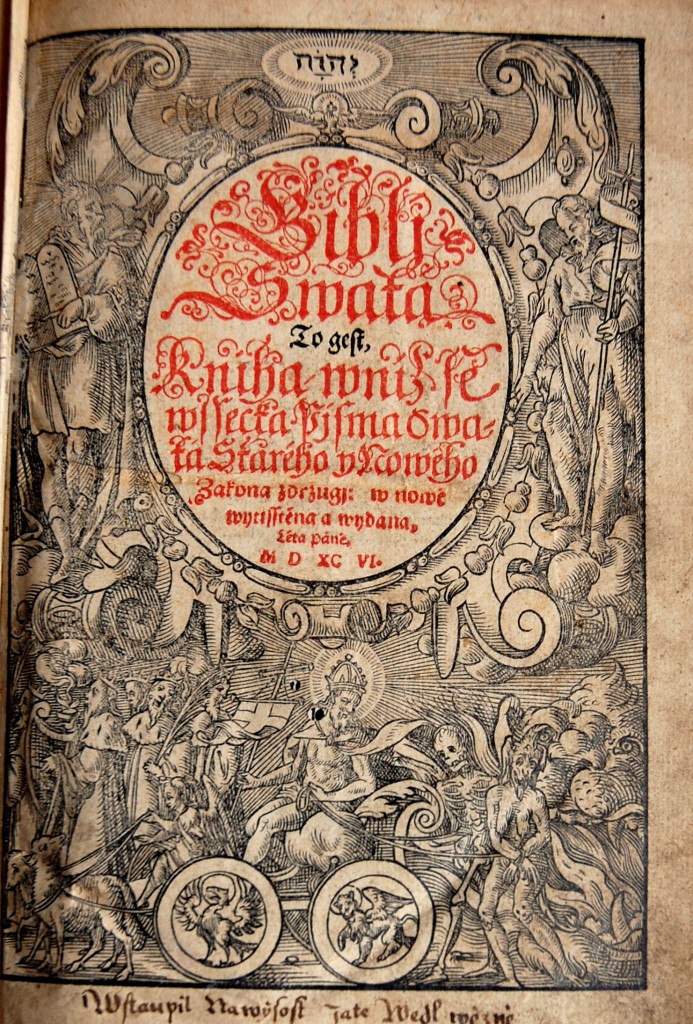 יְהוָה
Biblj
Swatá,
To gest,
Kniha, w njž se
wssecka Pjsma Swa-
tá Starého y Nowého
Zákona zdržugj: w nowě
wytisstěná a wydaná,
Léta Páně,
M D XC VI.
Wstaupil Na wysost Jate Wedl wězně